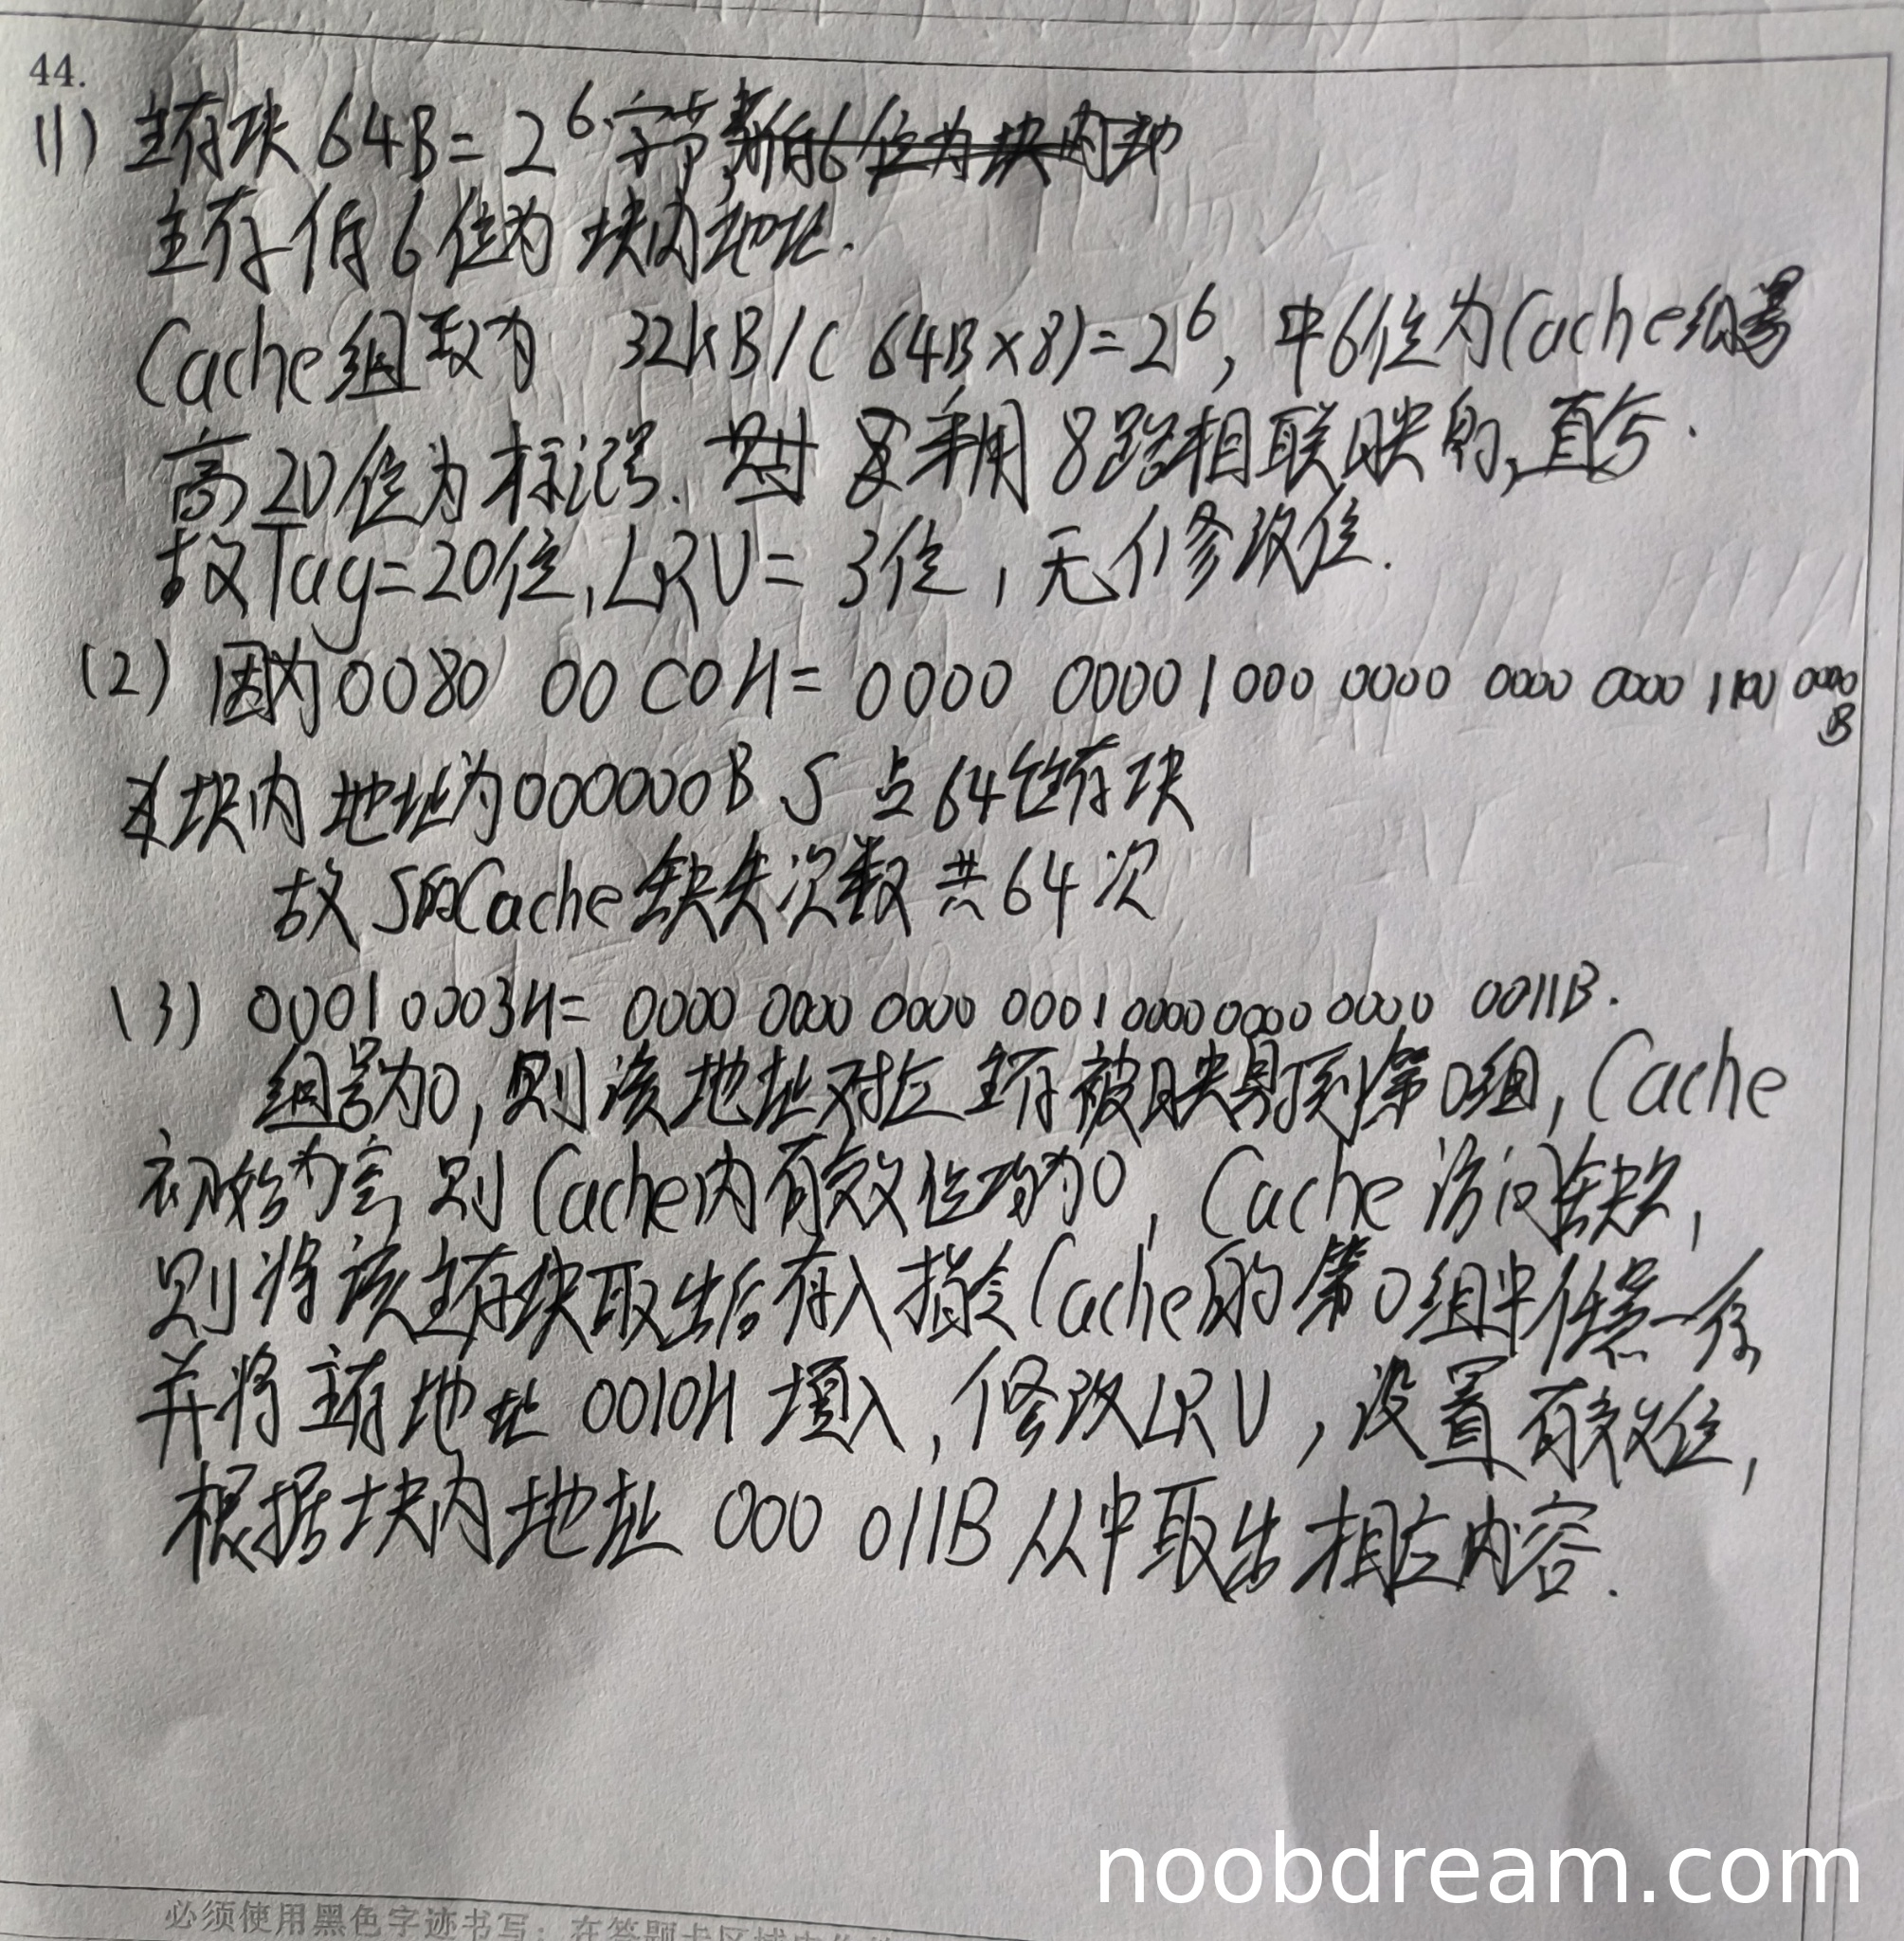 44.
(1) 主存块 64B = 2^6 字节 所有6位为块内地
主存低6位为 块内地址.
Cache组数为 32kB/(64B×8)=2^6, 中6位为Cache组号
高20位为标记号. 采用8路组相联映射,直写.
故Tag=20位, LRU= 3位, 无修改位.
(2) 因为0080 00C0H= 0000 0000 1000 0000 0000 0000 1100 0000
B
块内地址为000000B S 占64个主存块
故 S的Cache缺失次数共64次
(3) 0001 0003H= 0000 0000 0000 0001 0000 0000 0000 0011B.
组号为0, 则该地址对应主存被映射到第0组, Cache
初始为空, 则Cache内有效位均为0, Cache访问缺失,
则将该主存块取出后存入指令Cache的第0组中任意一行,
并将主存地址 0010H 填入, 修改LRU, 设置有效位,
根据块内地址 000 011B 从中取出相应内容.
noobdream.com
必须使用黑色字迹书写;在答题卡区域